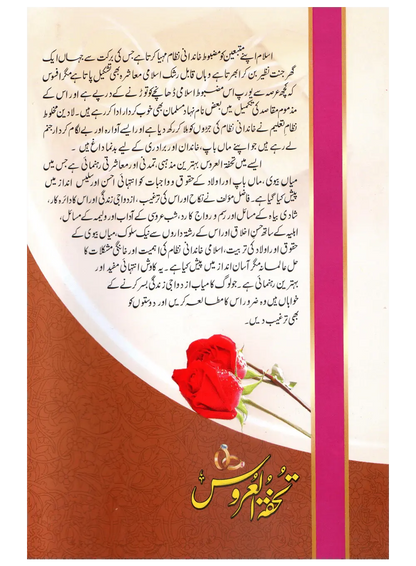 اسلام اپنے متبعین کو مضبوط خاندانی نظام مہیا کرتا ہے جس کی برکت سے جہاں ایک
گھر جنت نظیر بن کر ابھرتا ہے وہاں قابل رشک اسلامی معاشرہ بھی تشکیل پاتا ہے مگر افسوس
کہ کچھ عرصہ سے یورپ اس مضبوط اسلامی ڈھانچے کو توڑنے کے درپے ہے اور اس کے
مذموم مقاصد کی تکمیل میں بعض نام نہاد مسلمان بھی خوب کردار ادا کر رہے ہیں۔ لادین مخلوط
نظام تعلیم نے خاندانی نظام کی جڑوں کو ہلا کر رکھ دیا ہے اور ایسے آوارہ اور بے لگام کردار جنم
لے رہے ہیں جو اپنے ماں باپ، خاندان اور برادری کے لیے بدنما داغ ہیں۔
ایسے میں تحفۃ العروس بہترین مذہبی، تمدنی اور معاشرتی رہنمائی ہے جس میں
میاں بیوی، ماں باپ اور اولاد کے حقوق و واجبات کو انتہائی احسن اور سلیس انداز میں
پیش کیا گیا ہے۔ فاضل مؤلف نے نکاح اور اس کی ترغیب، ازدواجی زندگی اور اس کا دائرہ کار،
شادی بیاہ کے مسائل اور رسم و رواج کا رد، شب عروسی کے آداب اور ولیمہ کے مسائل،
اہلیہ کے ساتھ حسن اخلاق اور اس کے رشتہ داروں سے نیک سلوک، میاں بیوی کے
حقوق اور اولاد کی تربیت، اسلامی خاندانی نظام کی اہمیت اور خانگی مشکلات کا
حل عالمانہ مگر آسان انداز میں پیش کیا ہے۔ یہ کاوش انتہائی مفید اور
بہترین رہنمائی ہے۔ جو لوگ کامیاب ازدواجی زندگی بسر کرنے کے
خواہاں ہیں وہ ضرور اس کا مطالعہ کریں اور دوستوں کو
بھی ترغیب دیں۔
تحفۃ العروس